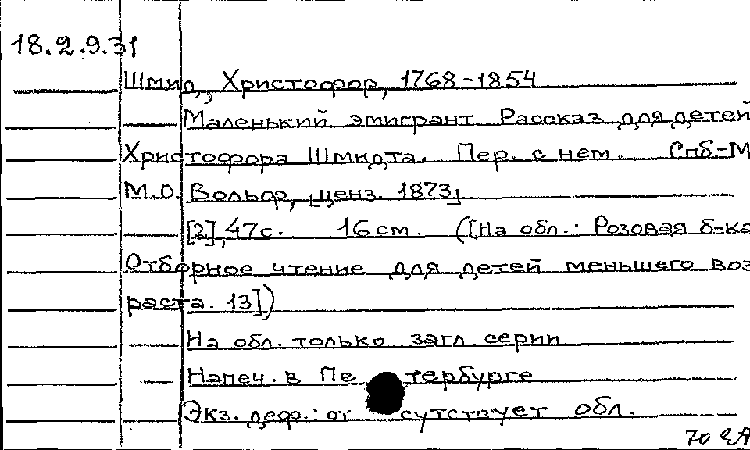 18.2.9.31
Шмид, Христофор, 1768-1854
Маленький эмигрант. Рассказ для детей
Христофора Шмидта. Пер. с нем. Спб-М
М.О. Вольф, [ценз. 1873]
[2], 47с. 16 см. ([На обл.: Розовая б-ка
Отборное чтение для детей меньшего воз
раста. 13])
На обл. только загл. серии
Напеч. в Пе тербурге
Экз. деф.: от сутствует обл.
70